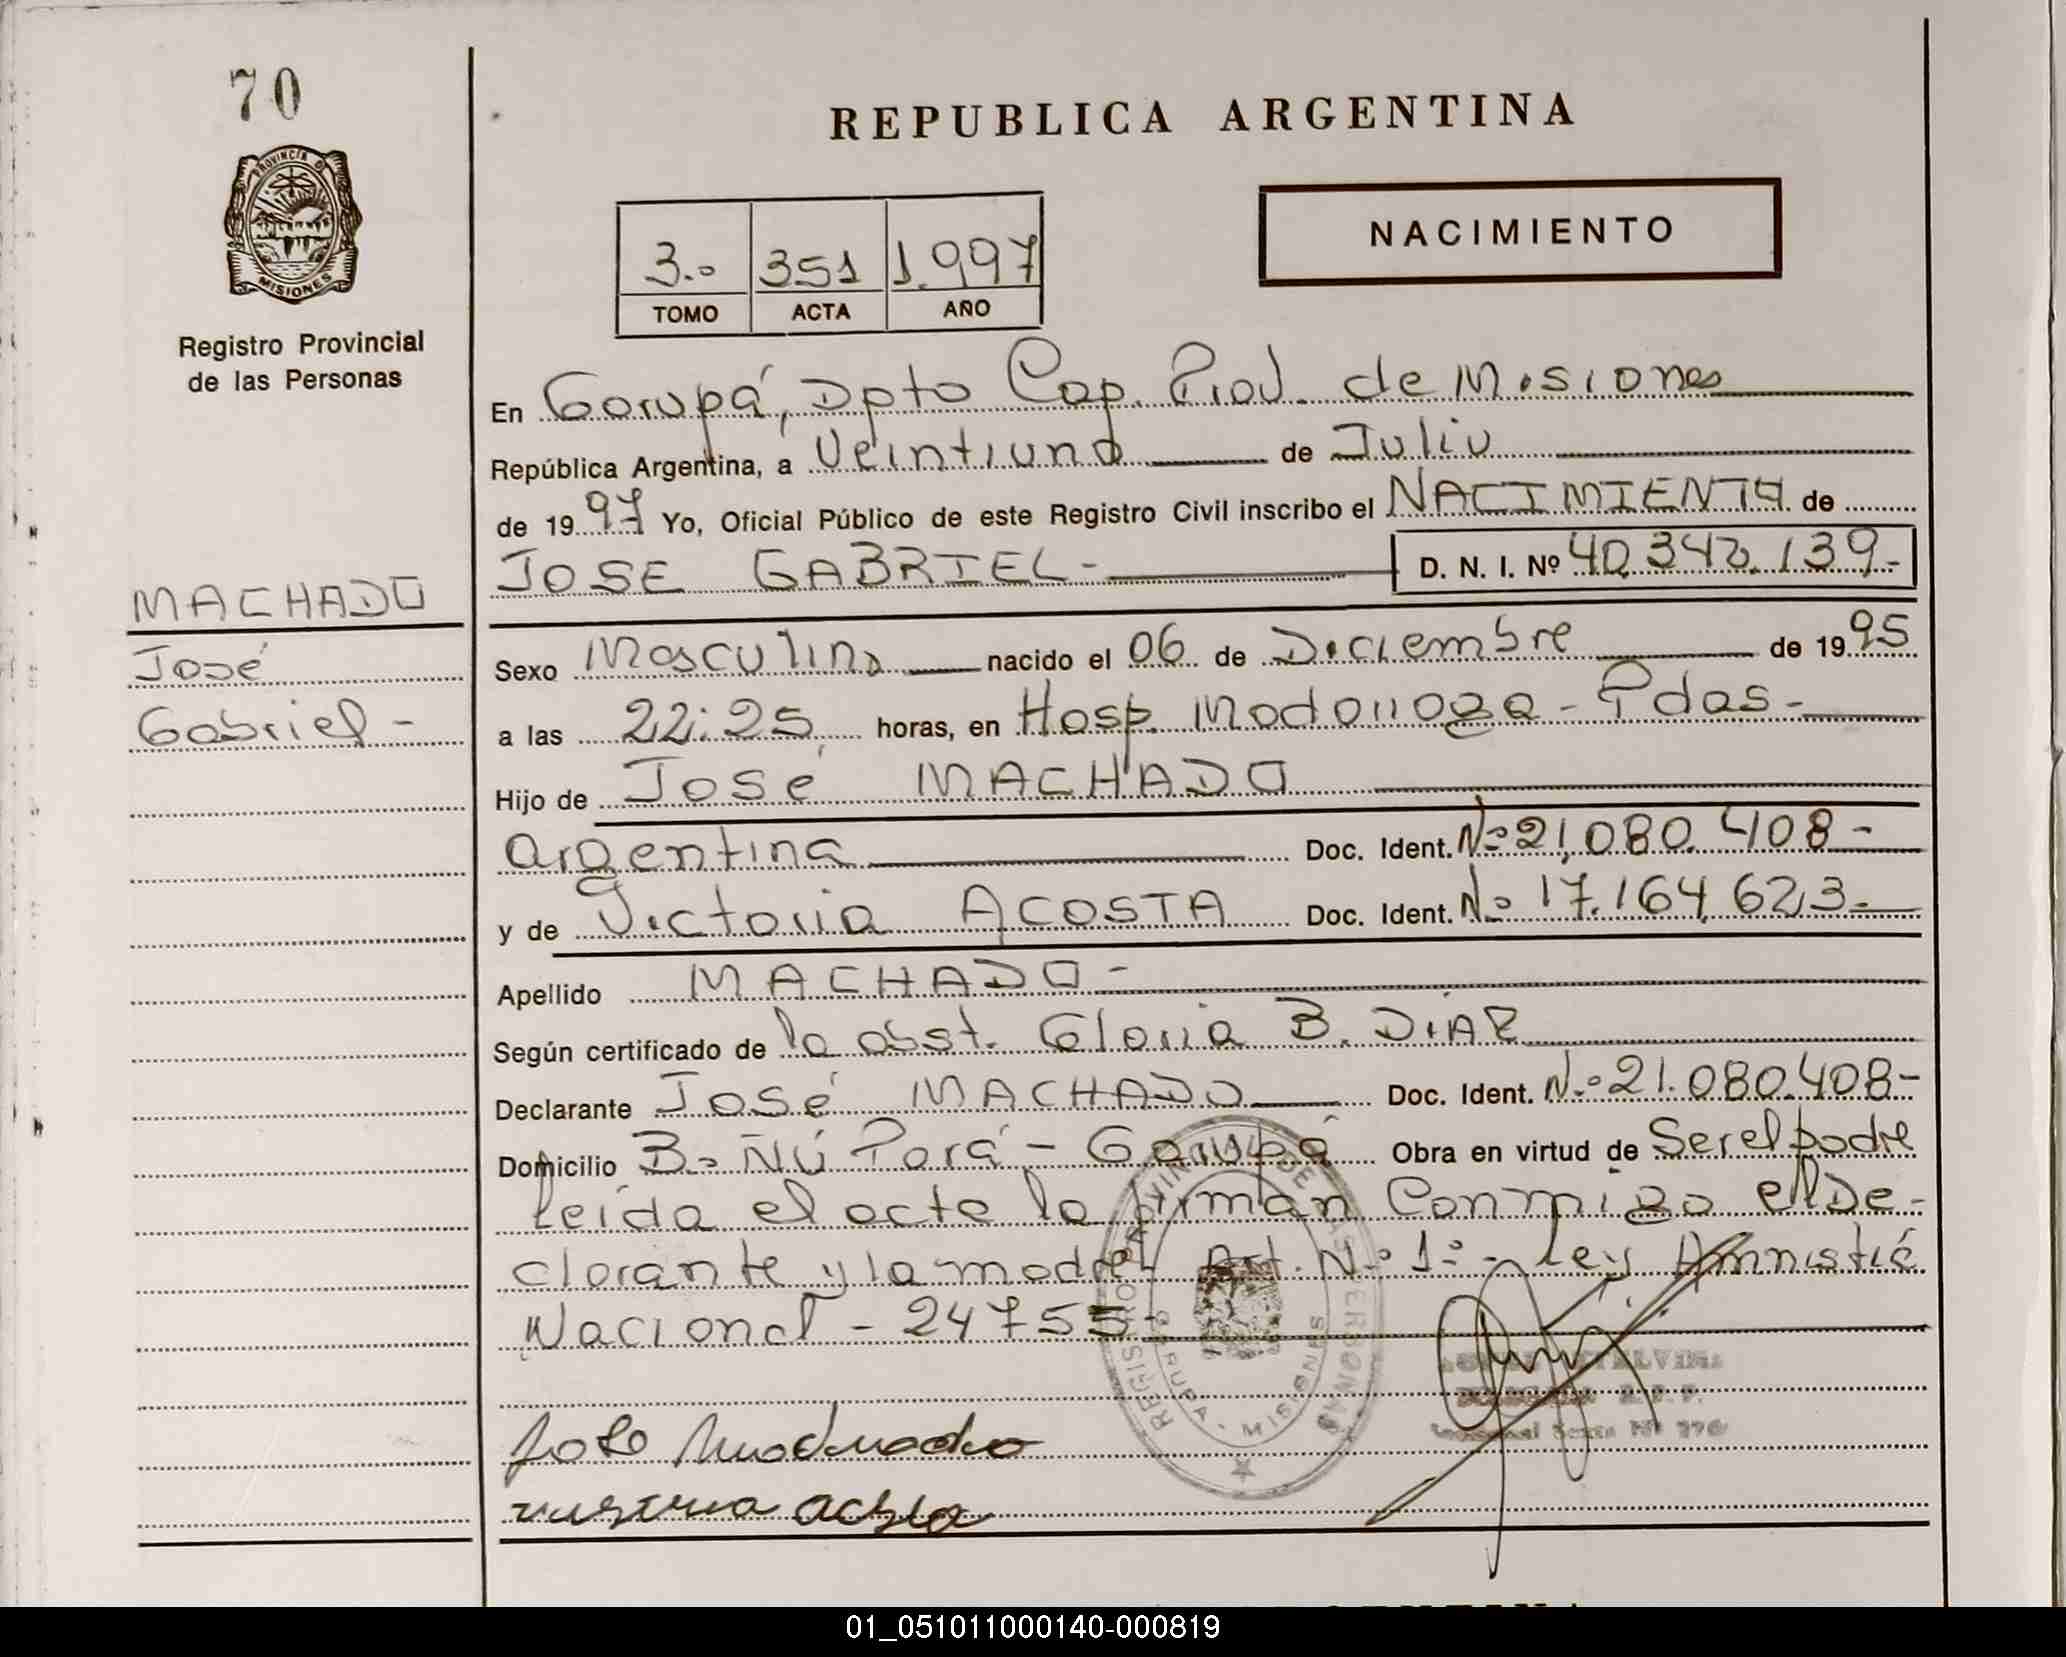 70
PROVINCIA DE
MISIONES
Registro Provincial
de las Personas
MACHADO
José
Gabriel -
REPUBLICA ARGENTINA
NACIMIENTO
3.º 351 1.997
TOMO ACTA AÑO
En Garupá, Dpto Cap. Prov. de Misiones
República Argentina, a Veintiuno de Julio
de 19 97 Yo, Oficial Público de este Registro Civil inscribo el NACIMIENTO de
JOSE GABRIEL - D. N. I. Nº 40.342.139.-
Sexo Masculino nacido el 06 de Diciembre de 19 95
a las 22:25 horas, en Hosp. Madariaga - Pdas -
Hijo de José MACHADO
Argentina Doc. Ident. Nº 21.080.408 -
y de Victoria ACOSTA Doc. Ident. Nº 17.164.623.-
Apellido MACHADO -
Según certificado de la obst. Gloria B. DÍAZ
Declarante José MACHADO Doc. Ident. N.º 21.080.408 -
Domicilio Bº ÑÚ Porá - Garupá Obra en virtud de Ser el padre
leída el acta la firman Conmigo el De-
clarante y la madre Art. N.º 1º - Ley Amnistía
Nacional - 24755
REGISTRO PROVINCIAL DE LAS PERSONAS
GARUPA - MISIONES
01_051011000140-000819